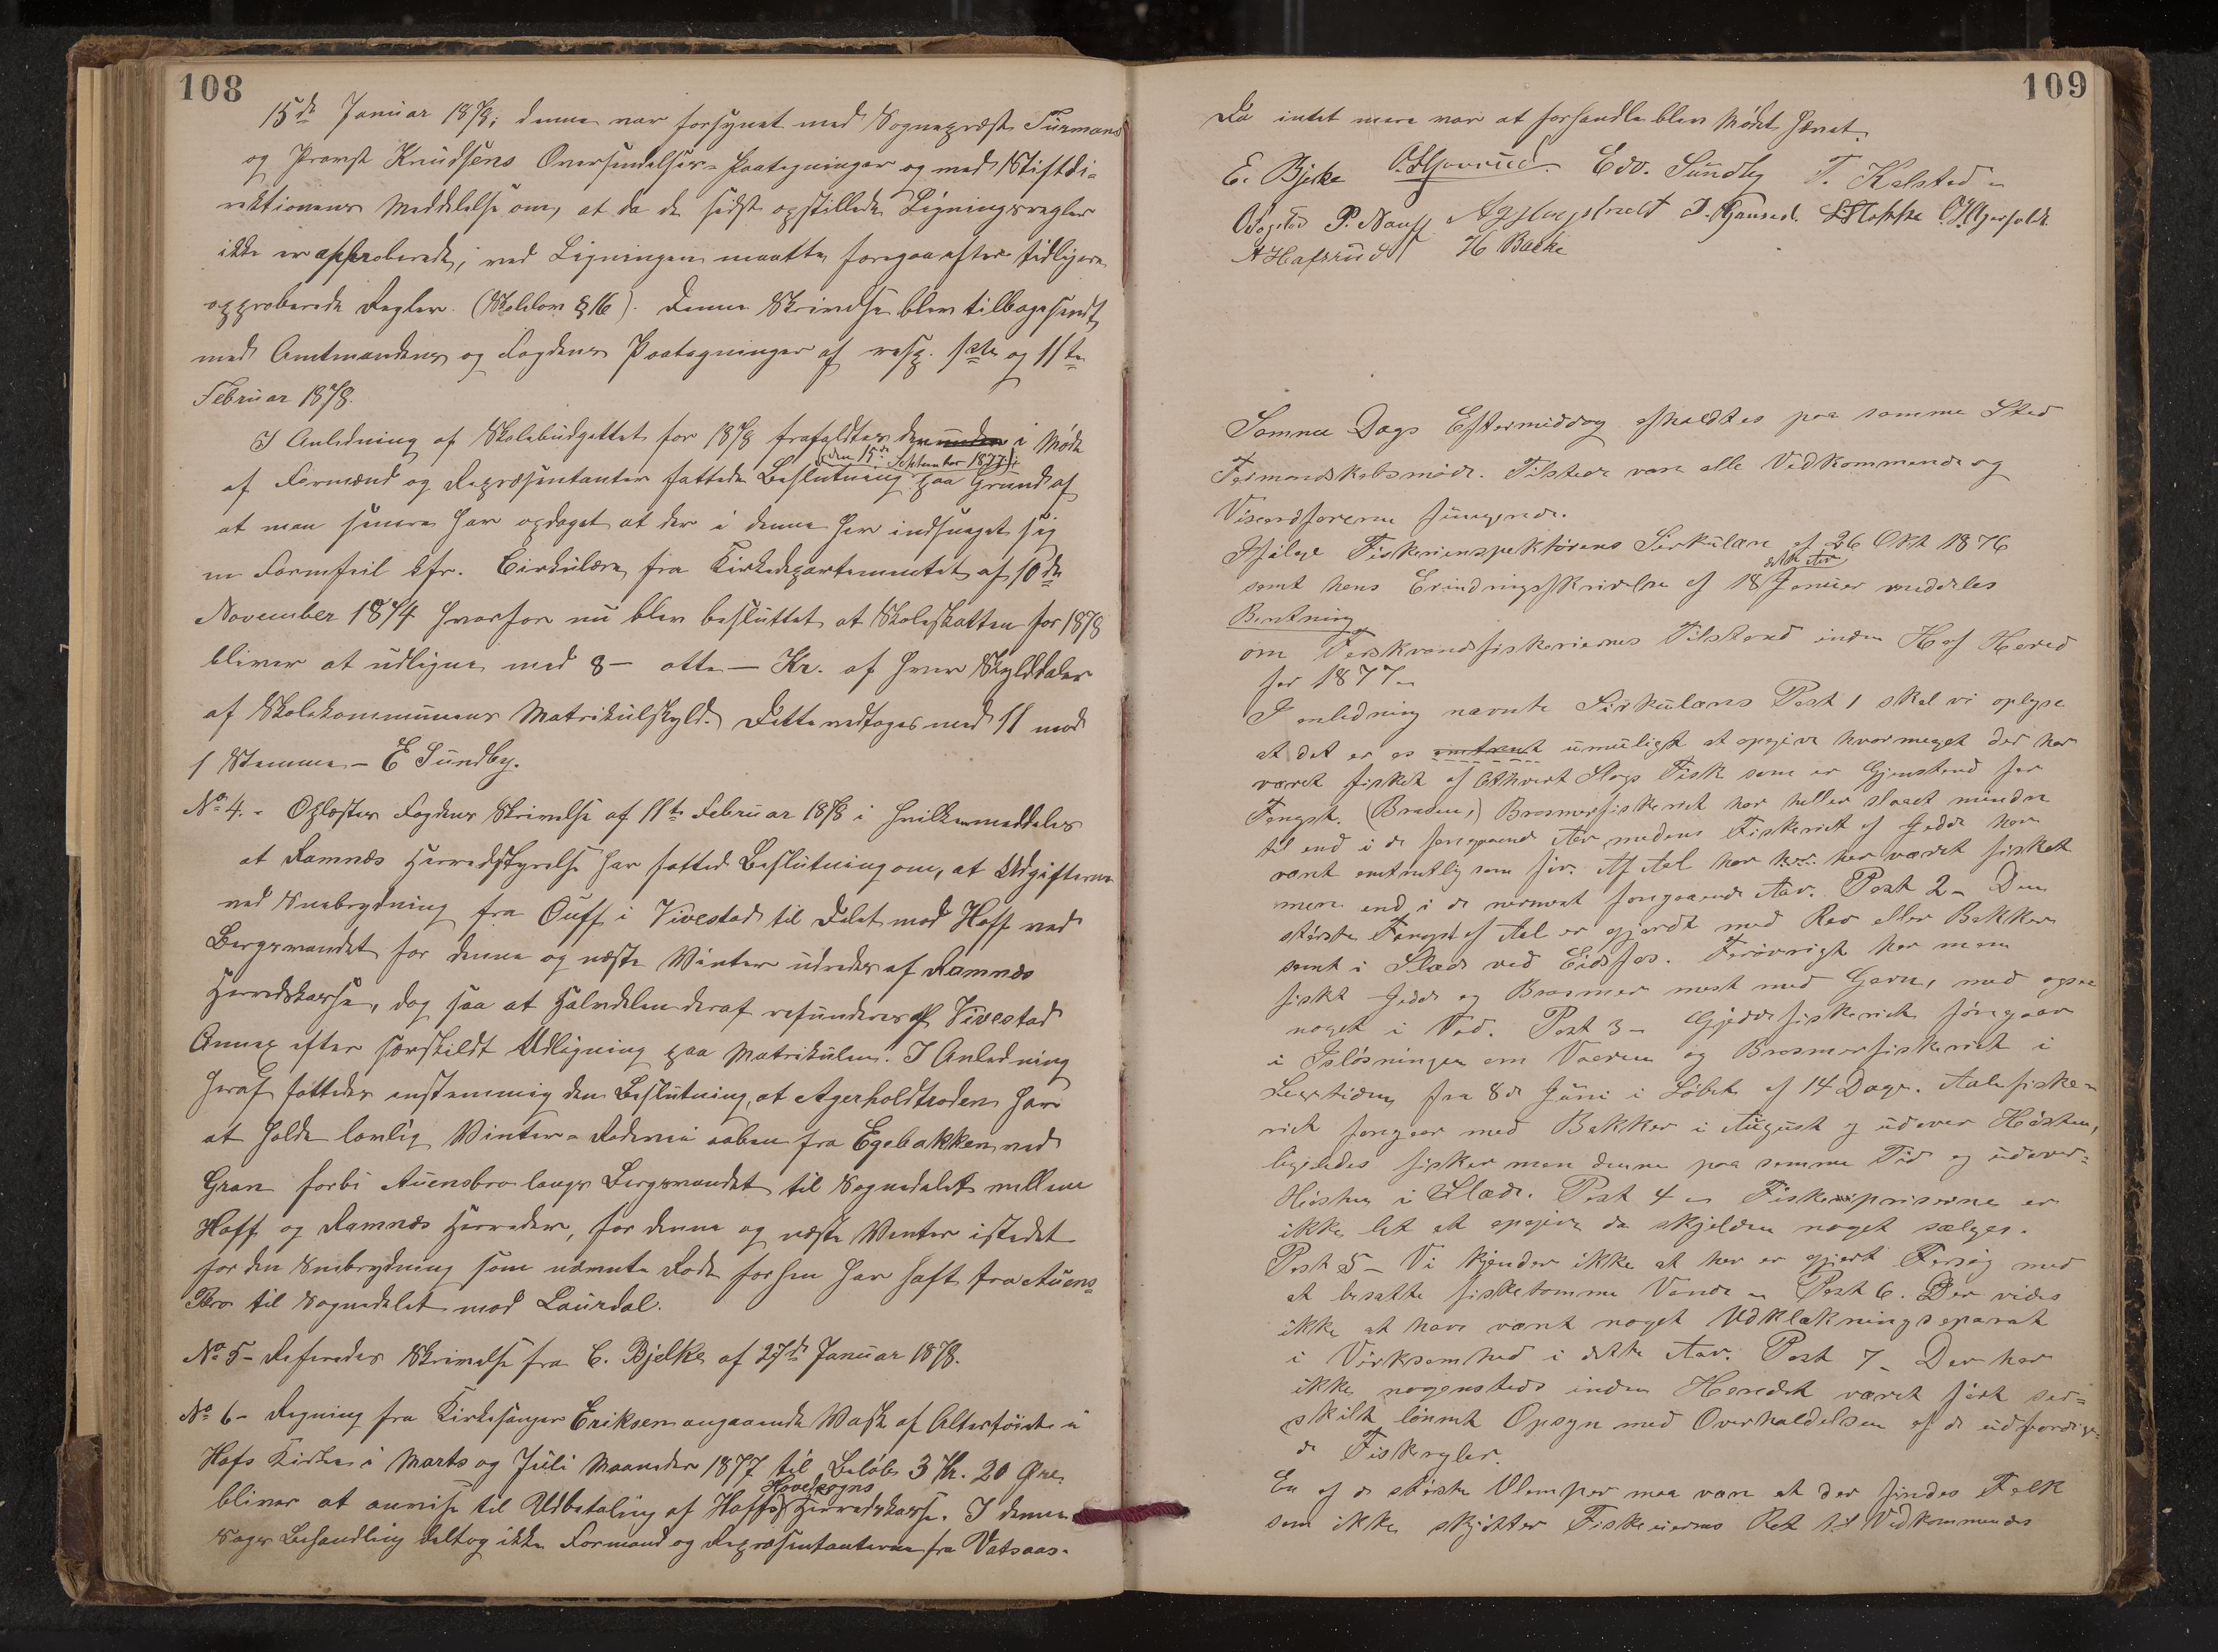 108
15de Januar 1878; denne var forsynet med Sognepræst Turmans
og Provst Knudsens Oversendelses-Paategninger og med Stiftdi-
rektionens Meddelelse om, at da de sidst opstillede Ligningsregler
ikke er approberede, ved Ligningen maatte foregaa efter tidligere
approberede Regler. (Skolelov § 16). Denne Skrivelse blev tilbagesendt
med Amtmandens og Fogdens Paategninger af resp. 1ste og 11te
Februar 1878.
I Anledning af Skolebudgettet for 1878 frafaldtes den i Møde
(den 15de September 1877)
af Formænd og Repræsentanter fattede Beslutning paa Grund af
at man senere har opdaget at der i denne har indsneget sig
en Formfeil cfr. Cirkulære fra Kirkedepartementet af 10de
November 1874 hvorfor nu blev besluttet at Skoleskatten for 1878
bliver at udligne med 8 - otte - Kr. af hver Skylddaler
af Skolekommunens Matrikulskyld. Dette vedtoges med 11 mod
1 Stemme - E Sundby.
No 4. - Oplæstes Fogdens Skrivelse af 11te Februar 1878 i hvilken meddeles
at Ramnæs Herredstyrelse har fattet Beslutning om, at Udgifterne
ved Snebrydning fra Ouff i Vivestad til Delet mod Hoff ved
Bergsvandet for denne og næste Vinter udredes af Ramnæs
Herredskasse, dog saa at Halvdelen deraf refunderes af Vivestad
Annex efter særskildt Udligning paa Matrikulen. I Anledning
heraf fattedes enstemmig den Beslutning, at Agerholdtroden har
at holde lovlig Vinter-Rodevei aaben fra Egebakken ved
Gran forbi Auensbro langs Bergsvandet til Sognedelet mellem
Hoff og Ramnæs Herreder, for denne og næste Vinter istedet
for den Snebrydning som nævnte Rode forhen har haft fra Auens-
Bro til Sognedelet mod Laurdal.
No 5 - Refereredes Skrivelse fra C. Bjelke af 27de Januar 1878.
No 6 - Regning fra Kirkesanger Eriksen angaaende Vask af Altertøiet i
Hofs Kirke i Marts og Juli Maaneder 1877 til Beløb 3 Kr. 20 Øre
Hovedsogns
bliver at anvise til Udbetaling af Hoffs Herredskasse. I denne
Sags Behandling deltog ikke Formænd og Repræsentanterne fra Vatsaas.
109
Da intet mere var at forhandle blev Mødet hævet.
E. Bjelke Edv. Sundby T. Kalstad
P. Nauff
A Hafsrud H Bakke
Samme Dags Eftermiddag afholdtes paa samme Sted
Formandskabsmøde. Tilstede vare alle Vedkommende og
Viseordføreren fungerede.
Ifølge Fiskeriinspektørens Sirkulære af 26 Okt 1876
dette Aar
samt hans Erindringsskrivelse af 18 Januar meddeles
Beretning
om Ferskvandsfiskeriernes Tilstand inden Hof Hered
for 1877
I anledning nævnte Sirkulærs Post 1 skal vi oplyse
at det er os omtrent umuligt at opgive hvormeget der har
været fisket af ethvert Slags Fisk som er Gjenstand for
Fangst. (Brasen,) Brasmerfiskeriet har heller slaaet mindre
til end i de foregaaende Aar medens Fiskeriet af Gjedde har
været omtrentlig som før. Af Aal har her været fisket
mere end i de nærmest foregaaende Aar. Post 2 - Den
største Fangst af Aal er gjordt med Rev eller Bakker
samt i Slæde ved Eidsfos. Forøvrigt har man
fisket Gjedde og Brasmer mest med Garn, med ogsaa
noget i Vad. Post 3 - Gjeddefiskeriet foregaar
i Isløsningen om Vaaren og Brasmerfiskeriet i
Legetiden fra 8de Juni i Løbet af 14 Dage. Aalefiske-
riet foregaar med Bakker i August og udover Høsten,
ligeledes fisker man denne paa samme Tid og udover
Høsten i Slæde. Post 4 - Fiskepriserne er
ikke let at opgive da skjelden noget sælges.
Post 5 - Vi kjender ikke at her er gjort Forsøg med
at besætte fisketomme Vande - Post 6. Der vides
ikke at have vært noget Udklækningsaparat
i Virksomhed i dette Aar. Post 7 - Der har
ikke nogensteds inden Heredet været ført sær-
skilt lønnet Opsyn med Overholdelsen af de udfærdige-
de Fiskeregler.
En af de største Ulemper maa være at der findes Folk
som ikke skjøtter Fiskeeiernes Ret til Vedkommendes